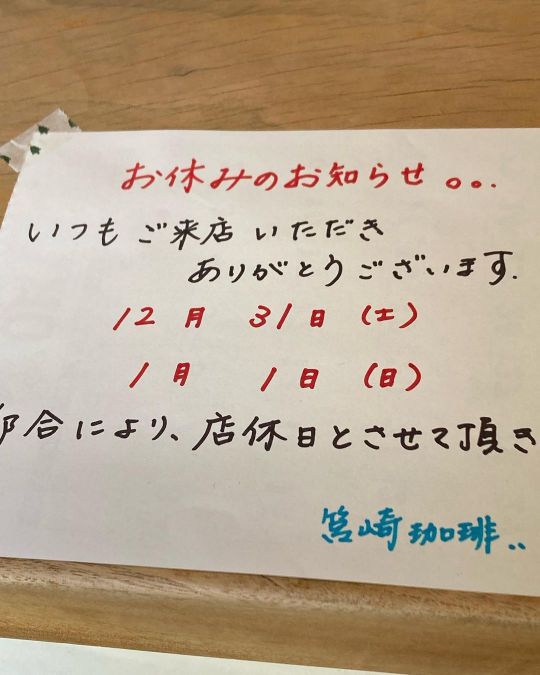 お休みのお知らせ。。.
いつも ご来店 いただき
ありがとうございます.
12月 31日 (土)
1月 1日 (日)
合により、店休日とさせて頂き
筥崎珈琲..